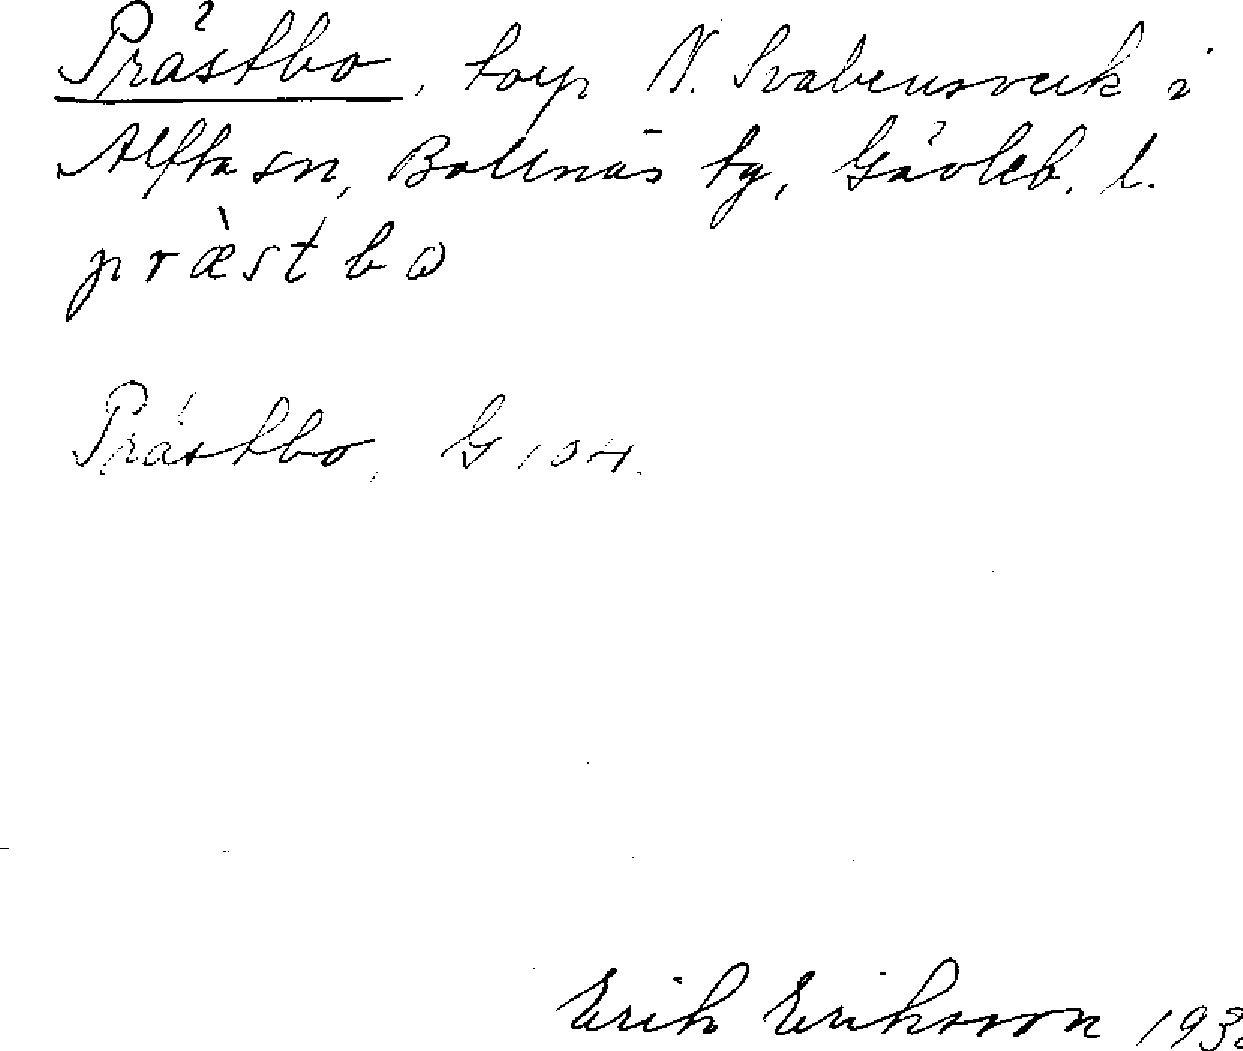 Prästbo, torp N. Svabensverk i
Alfta sn, Bollnäs tg, Gävleb. l.
pr&#x00E6;&#x0300;stbω
Prästbo, G 104.
Erik Eriksson 193